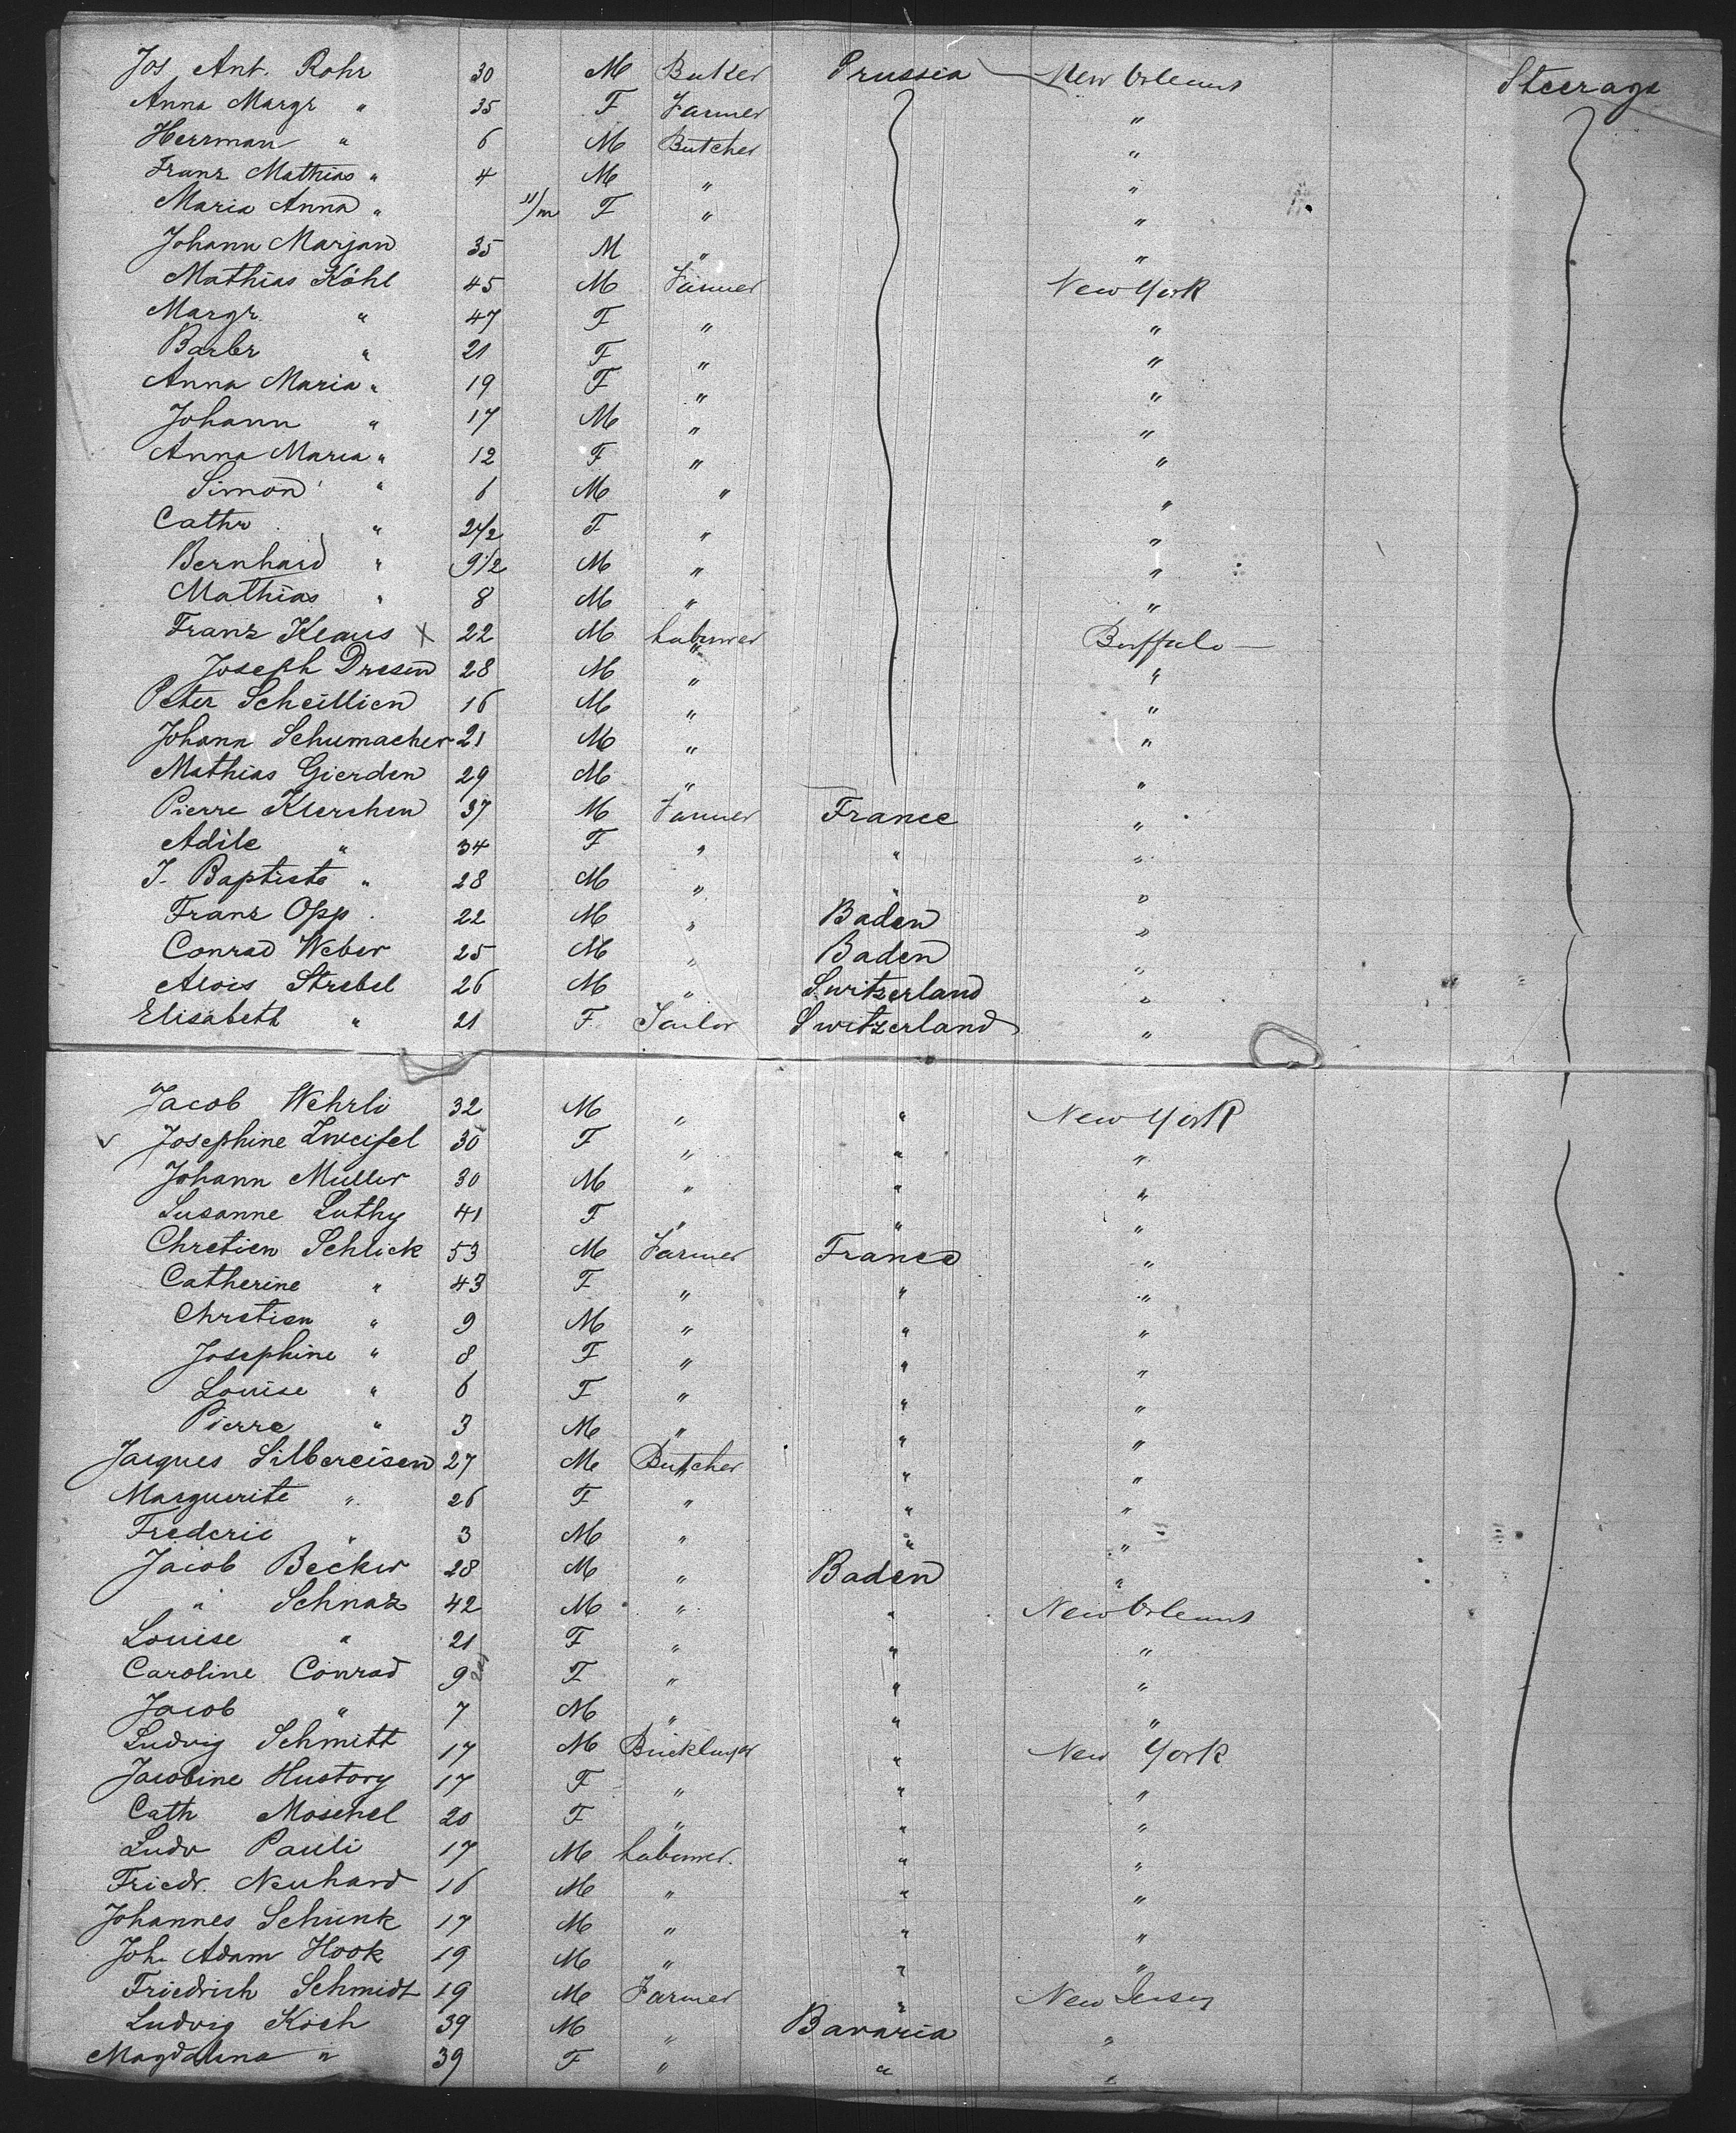 Jos Ant. Rohr 30 M Baker Prussia New Orleans Steerage
Anna Margr " 35 F Farmer "
Herrman " 6 M Butcher "
Franz Mathias " 4 M " "
Maria Anna " 11/m F " "
Johann Marjan 35 M " "
Mathias Köhl 45 M Farmer New York
Margr. " 47 F " "
Barbr " 21 F " "
Anna Maria " 19 F " "
Johann " 17 M " "
Anna Maria " 12 F " "
Simon " 6 M " "
Cathr " 2 1/2 F " "
Bernhard " 9 1/2 M " "
Mathias " 8 M " "
Franz Klaus X 22 M Labourer Buffalo
Joseph Dresen 28 M " "
Peter Scheillien 16 M " "
Johann Schumacher 21 M " "
Mathias Gierden 29 M " "
Pierre Klerchen 37 M Farmer France "
Adile " 34 F " " "
J. Baptiste " 28 M " " "
Franz Opp. 22 M " Baden "
Conrad Weber 25 M " Baden "
Alois Strebel 26 M " Switzerland "
Elisabeth " 21 F Tailor Switzerland "
Jacob Wehrli 32 M " " New York
Josephine Zweifel 30 F " " "
Johann Muller 30 M " " "
Susanne Luthy 41 F " " "
Chretien Schlick 53 M Farmer France "
Catherine " 43 F " " "
Chretien " 9 M " " "
Josephine " 8 F " " "
Louise " 6 F " " "
Pierre " 3 M " " "
Jacques Silbereisen 27 M Butcher " "
Marguerite " 26 F " " "
Frederic " 3 M " " "
Jacob Becker 28 M " Baden "
" Schnaz 42 M " " New Orleans
Louise " 21 F " " "
Caroline Conrad 9 F " " "
Jacob " 7 M " " "
Ludvig Schmitt 17 M Bricklayer " New York
Jacobine Hustory 17 F " " "
Cath Moschel 20 F " " "
Ludv Pauli 17 M Labourer. " "
Friedr. Neuhard 16 M " " "
Johannes Schunk 17 M " " "
Joh. Adam Hook 19 M " " "
Friedrich Schmidt 19 M Farmer " New Jersey
Ludvig Koch 39 M " Bavaria "
Magdalena " 39 F " " "